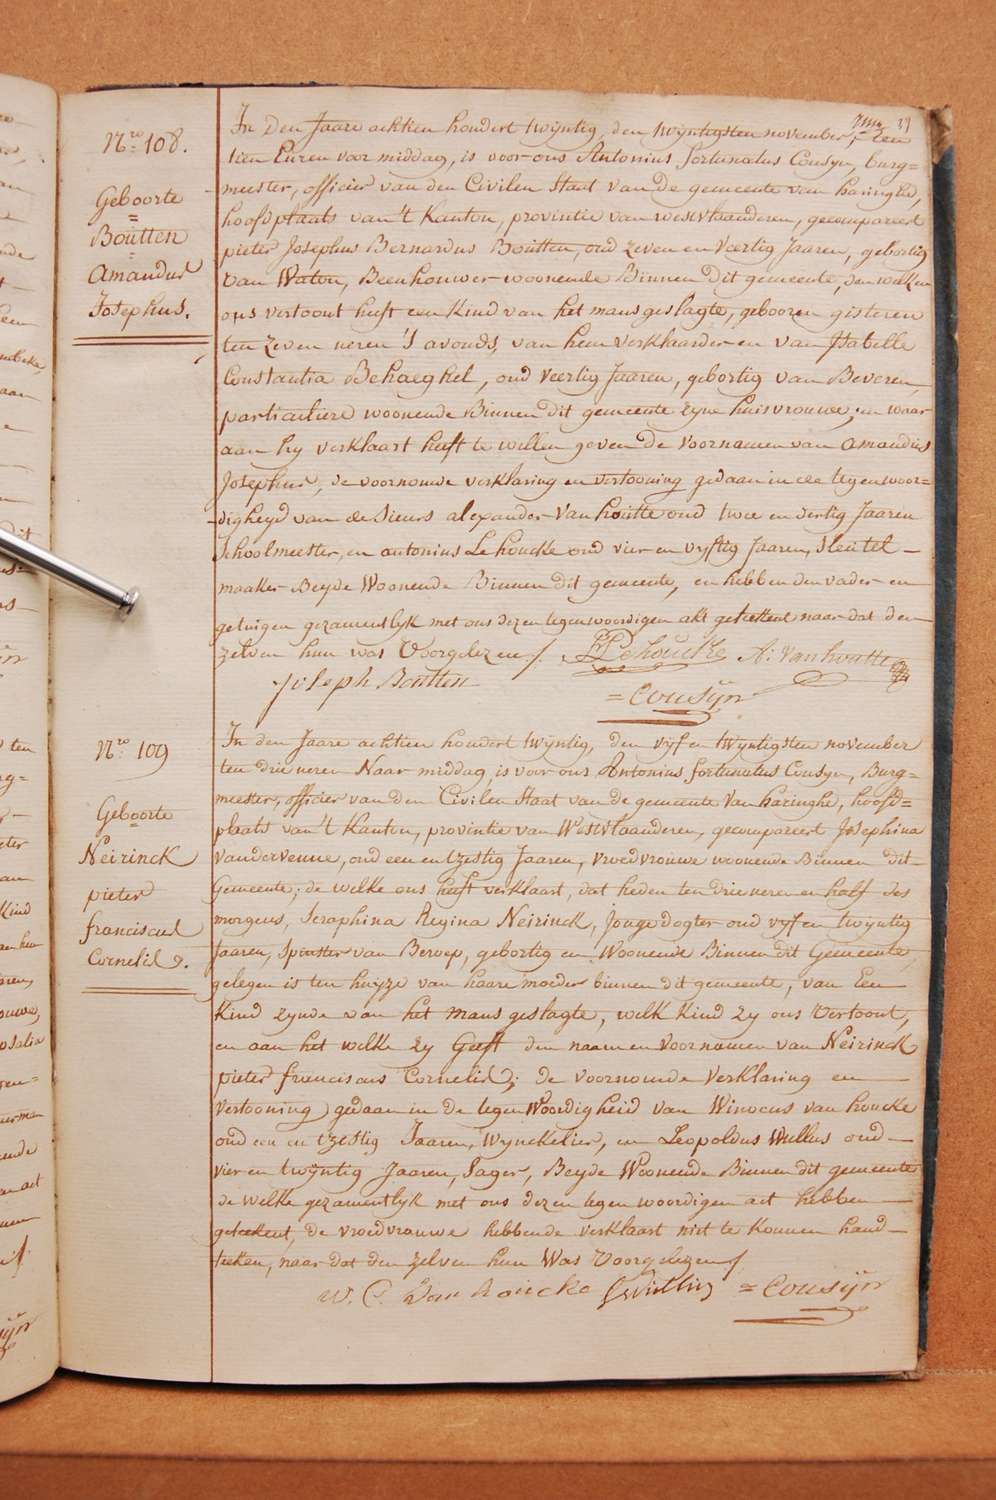 39
Nro 108.
Geboorte
=
Boútten
=
Amandus
Josephus.
In Den Jaare achtien hondert twÿntig, den twÿntigsten november,
tien Euren voor middag, is voor ons Antonius fortunatus Cousyn, burg=
meester, officier van den Civilen Staat van de gemeente van haringhe,
hoofdplaats van't Kanton, provintie van westvlaanderen, gecompareert
pieter Josephus Bernardus Boútten, oud zeven en Veertig Jaaren, gebortig
van Watou, Beenhouwer woonende Binnen dit gemeente, den welken
ons vertoont heeft een Kind van het mans geslagte, gebooren gisteren
ten zeven ueren 's avonds, van hem verklaarder en van Isabelle
Constantia Behaeghel, oud Veertig Jaaren, gebortig van Beveren,
particuliere woonende Binnen dit gemeente zyne huisvrouwe, en waar
aan hy verklaart heeft te willen geven de Voornamen van Amandus
Josephus, de voornomde verklaring en vertooning gedaan in de tegenwoor=
digheyd van de Sieurs alexander Van houtte oud twee en dertig Jaaren
Schoolmeester, en antonius Lehoucke oud vier en vyftig Jaaren, Sleutel-
maaker Beyde Woonende Binnen dit gemeente, en hebben den vader en
getuigen gezamentlyk met ons dezen tegenwoordigen akt geteekent naar dat den
zelven hun was Voorgelezen /. Lehoucke A: Van houtte
Joseph Boútten
= Cousÿn
Nro 109
Geboorte
Neirinck
pieter
franciscus
Cornelis.
In den Jaare achtien hondert twÿntig, den vyf en twÿntigsten november
ten drie ueren Naar middag, is voor ons Antonius fortunatus Cousyn, Burg=
meester, officier van den Civilen Staat van de gemeente Van haringhe, hoofd=
plaats van't Kanton, provintie van Westvlaanderen, gecompareert Josephina
Vandervenne, oud een en tzestig Jaaren, Vroedvrouwe woonende Binnen dit
Gemeente; de welke ons heeft verklaart, dat heden ten drie ueren en half des
morgens, Seraphina Regina Neirinck, Jonge dogter oud vyf en twÿntig
Jaaren, Spinster van Beroep, gebortig en Woonende Binnen dit Gemeente,
gelegen is ten huyze van haare moeder binnen dit gemeente, van Een
Kind zynde van het mans geslagte, welk Kind zy ons Vertoont,
en aan het welke zy Geeft den naam en Voornamen van Neirinck
pieter franciscus Cornelis; de voornoemde Verklaring en
Vertooning gedaan in de tegen Woordigheid van Winocus van houcke
oud een en tzestig Jaaren, Wynckelier, en Leopoldus Wullus oud
vier en twÿntig Jaaren, Sager, Beyde Woonende Binnen dit gemeente
de welke gezamentlyk met ons dezen tegen woordigen act hebben
geteekent, de vroedvrouwe hebbende verklaart niet te konnen hand-
teeken, naar dat den zelven hun Was Voorgelezen /.
W. C. Van houcke = Cousÿn